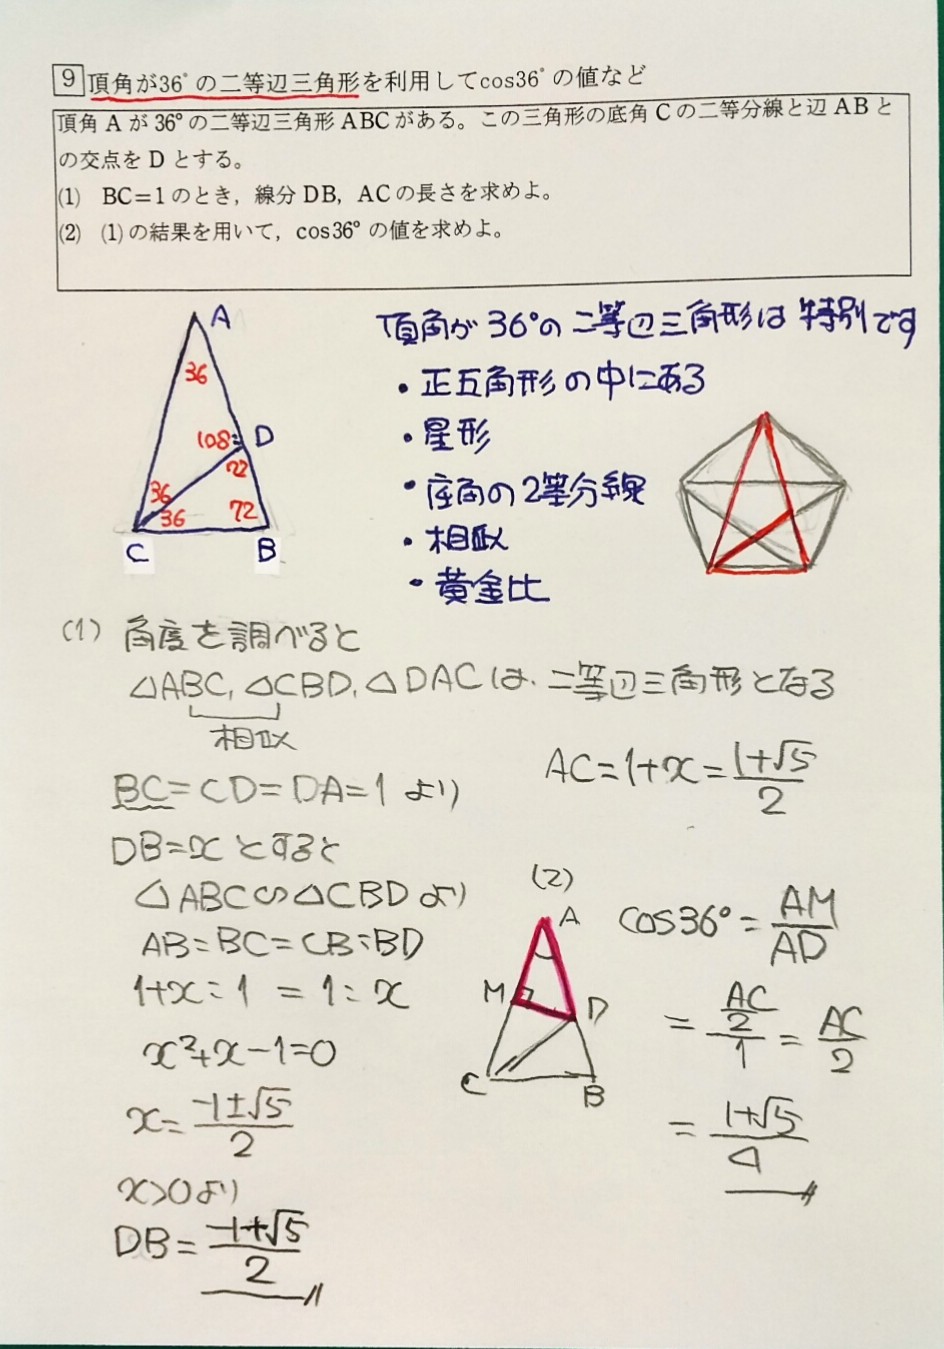 9 頂角が36°の二等辺三角形を利用してcos36°の値など
頂角 A が 36° の二等辺三角形 ABC がある。この三角形の底角 C の二等分線と辺 AB と
の交点を D とする。
(1) BC=1 のとき，線分 DB，AC の長さを求めよ。
(2) (1) の結果を用いて，cos36° の値を求めよ。
A
36
108
D
72
36
36
72
C
B
頂角が36°の二等辺三角形は特別です
・正五角形の中にある
・星形
・底角の2等分線
・相似
・黄金比
(1) 角度を調べると
△ABC, △CBD, △DACは、二等辺三角形となる
相似
BC=CD=DA=1 より
DB=x とすると
△ABC∽△CBDより
AB:BC=CB:BD
1+x:1 = 1:x
x²+x-1=0
x= -1±√5/2
x>0より
DB= -1+√5/2
AC=1+x= 1+√5/2
(2)
A
M
D
C
B
cos36°= AM/AD
= AC/2/1 = AC/2
= 1+√5/4